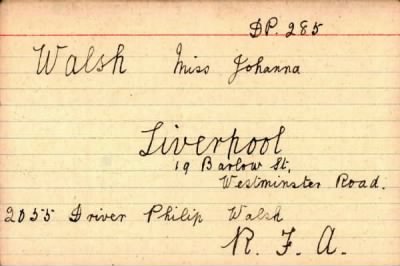 DP. 285
Walsh Miss Johanna
Liverpool
19 Barlow St,
Westminster Road.
2055 Driver Philip Walsh
R. F. A.